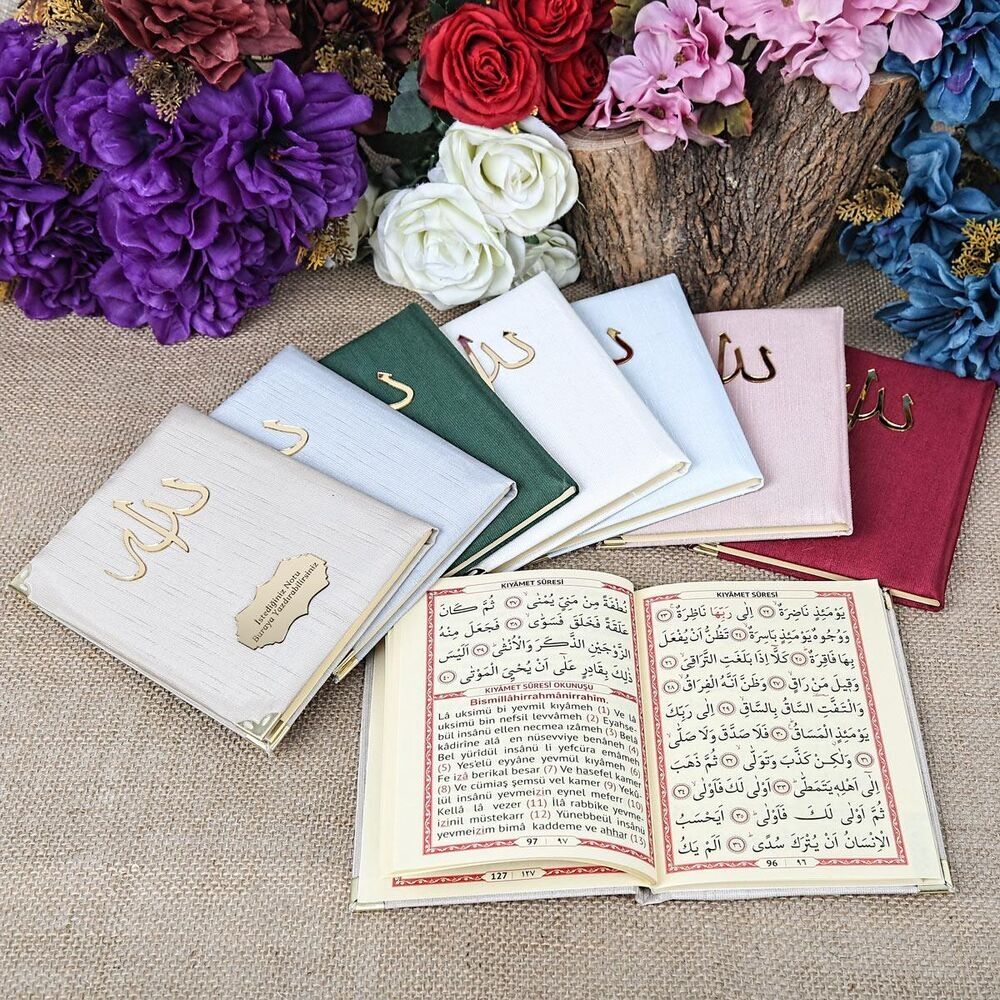 الله
İstediğiniz Notu
Buraya Yazdırabilirsiniz
KIYÂMET SÛRESİ
يَوْمَئِذٍ نَاضِرَةٌ ﴿٢٢﴾ اِلٰى رَبِّهَا نَاظِرَةٌ ﴿٢٣﴾
وَوُجُوهٌ يَوْمَئِذٍ بَاسِرَةٌ ﴿٢٤﴾ تَظُنُّ اَنْ يُفْعَلَ
بِهَا فَاقِرَةٌ ﴿٢٥﴾ كَلَّا اِذَا بَلَغَتِ التَّرَاقِيَ ﴿٢٦﴾
وَقِيلَ مَنْ رَاقٍ ﴿٢٧﴾ وَظَنَّ اَنَّهُ الْفِرَاقُ ﴿٢٨﴾
وَالْتَفَّتِ السَّاقُ بِالسَّاقِ ﴿٢٩﴾ اِلٰى رَبِّكَ
يَوْمَئِذٍ الْمَسَاقُ ﴿٣٠﴾ فَلَا صَدَّقَ وَلَا صَلّٰى
﴿٣١﴾ وَلٰكِنْ كَذَّبَ وَتَوَلّٰى ﴿٣٢﴾ ثُمَّ ذَهَبَ
اِلٰى اَهْلِهِ يَتَمَطّٰى ﴿٣٣﴾ اَوْلٰى لَكَ فَاَوْلٰى ﴿٣٤﴾
ثُمَّ اَوْلٰى لَكَ فَاَوْلٰى ﴿٣٥﴾ اَيَحْسَبُ
الْاِنْسَانُ اَنْ يُتْرَكَ سُدًى ﴿٣٦﴾ اَلَمْ يَكُ
96 | ٩٦
KIYÂMET SÛRESİ
نُطْفَةً مِنْ مَنِيٍّ يُمْنٰى ﴿٣٧﴾ ثُمَّ كَانَ
عَلَقَةً فَخَلَقَ فَسَوّٰى ﴿٣٨﴾ فَجَعَلَ مِنْهُ
الزَّوْجَيْنِ الذَّكَرَ وَالْاُنْثٰى ﴿٣٩﴾ اَلَيْسَ
ذٰلِكَ بِقَادِرٍ عَلٰٓى اَنْ يُحْيِيَ الْمَوْتٰى ﴿٤٠﴾
KIYÂMET SÛRESİ OKUNUŞU
Bismillâhirrahmânirrahîm.
Lâ uksimü bi yevmil kıyâmeh (1) Ve lâ
uksimü bin nefsil levvâmeh (2) Eyahse-
bül insânü ellen necmea ızâmeh (3) Belâ
kâdirîne alâ en nüsevviye benâneh (4)
Bel yürîdül insânü li yefcüra emâmeh
(5) Yes'elü eyyâne yevmül kıyâmeh (6)
Fe izâ berikal besar (7) Ve hasefel kamer
(8) Ve cümiaş şemsü vel kamer (9) Yekû-
lül insânü yevmeizin eynel meferr (10)
Kellâ lâ vezer (11) İlâ rabbike yevme-
izinil müstekarr (12) Yünebbeül insânü
yevmeizim bimâ kaddeme ve ahhar (13)
97 | ٩٧
127 | ١٢٧